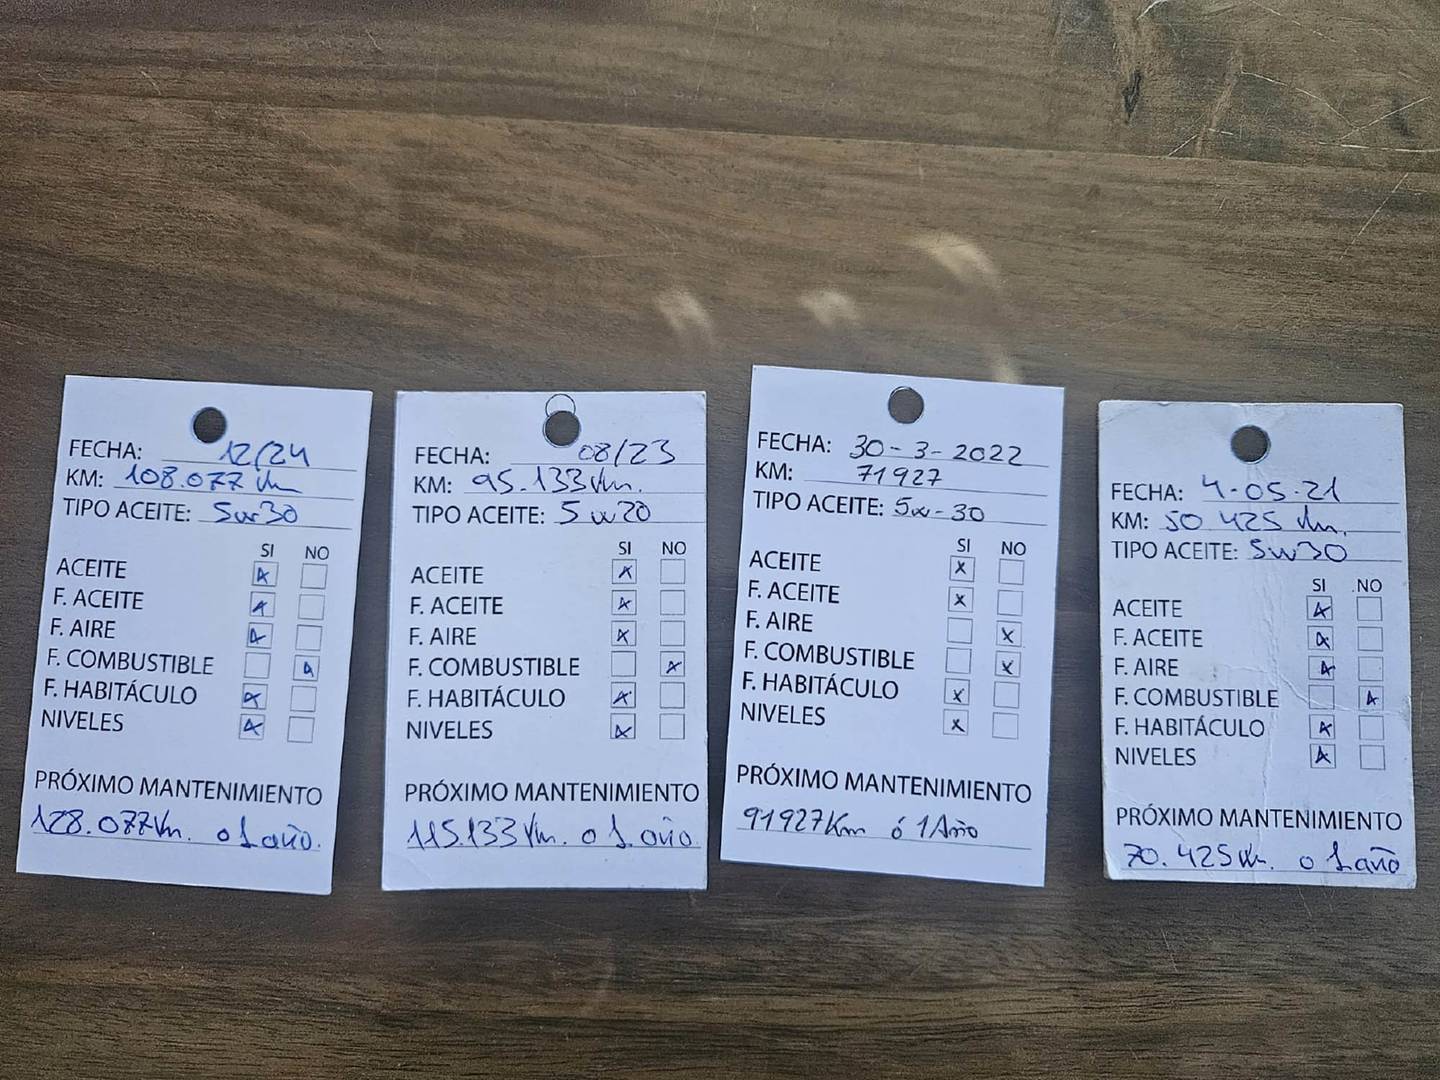 FECHA: 12/24
KM: 108.077 Km
TIPO ACEITE: 5w30
SI NO
ACEITE
F. ACEITE
F. AIRE
F. COMBUSTIBLE
F. HABITÁCULO
NIVELES
PRÓXIMO MANTENIMIENTO
128.077Km. o 1 año.
FECHA: 08/23
KM: 95.133 Km.
TIPO ACEITE: 5w20
SI NO
ACEITE
F. ACEITE
F. AIRE
F. COMBUSTIBLE
F. HABITÁCULO
NIVELES
PRÓXIMO MANTENIMIENTO
115.133 Km. o 1 año.
FECHA: 30-3-2022
KM: 71927
TIPO ACEITE: 5w-30
SI NO
ACEITE
F. ACEITE
F. AIRE
F. COMBUSTIBLE
F. HABITÁCULO
NIVELES
PRÓXIMO MANTENIMIENTO
91927Km ó 1 Año
FECHA: 4-05-21
KM: 50 425 Km.
TIPO ACEITE: 5w30
SI NO
ACEITE
F. ACEITE
F. AIRE
F. COMBUSTIBLE
F. HABITÁCULO
NIVELES
PRÓXIMO MANTENIMIENTO
70.425 Km. o 1 año